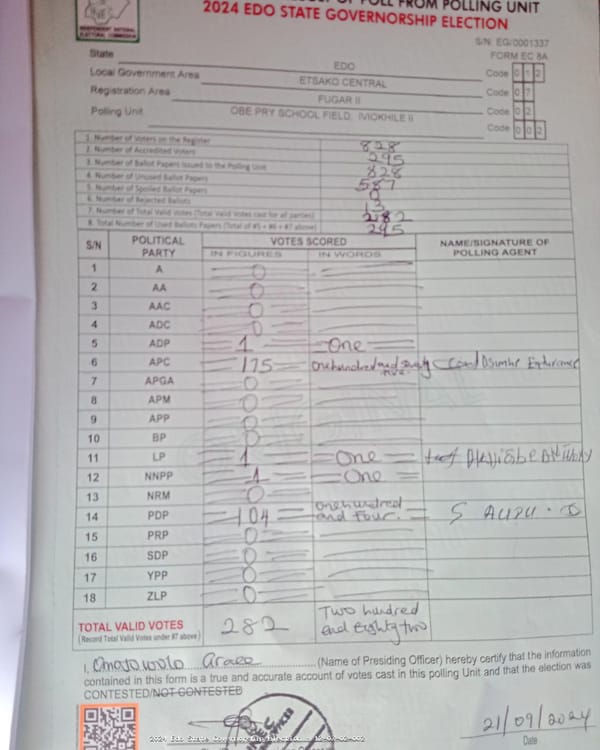 OF POLL FROM POLLING UNIT
2024 EDO STATE GOVERNORSHIP ELECTION
INDEPENDENT NATIONAL ELECTORAL COMMISSION
S/N: EG/0001337
FORM EC 8A
State EDO Code 0 1 2
Local Government Area ETSAKO CENTRAL Code 0 7
Registration Area FUGAR II Code 0 2
Polling Unit OBE PRY SCHOOL FIELD, IVIOKHILE II Code 0 0 2
1. Number of Voters on the Register 828
2. Number of Accredited Voters 295
3. Number of Ballot Papers Issued to the Polling Unit 828
4. Number of Unused Ballot Papers 587
5. Number of Spoiled Ballot Papers 0
6. Number of Rejected Ballots 13
7. Number of Total Valid Votes (Total Valid Votes cast for all parties) 282
8. Total Number of Used Ballots Papers (Total of #5 + #6 + #7 above) 295
S/N POLITICAL PARTY VOTES SCORED NAME/SIGNATURE OF POLLING AGENT
IN FIGURES IN WORDS
1 A 0
2 AA 0
3 AAC 0
4 ADC 0
5 ADP 1 One
6 APC 175 One hundred and seventy five
7 APGA 0
8 APM 0
9 APP 0
10 BP 0
11 LP 1 One
12 NNPP 1 One
13 NRM 0
14 PDP 104 One hundred and Four.
15 PRP 0
16 SDP 0
17 YPP 0
18 ZLP 0
TOTAL VALID VOTES 282 Two hundred and eighty two
(Record Total Valid Votes under #7 above)
I, (Name of Presiding Officer) hereby certify that the information
contained in this form is a true and accurate account of votes cast in this polling Unit and that the election was
CONTESTED/NOT CONTESTED
21/09/2024
Date